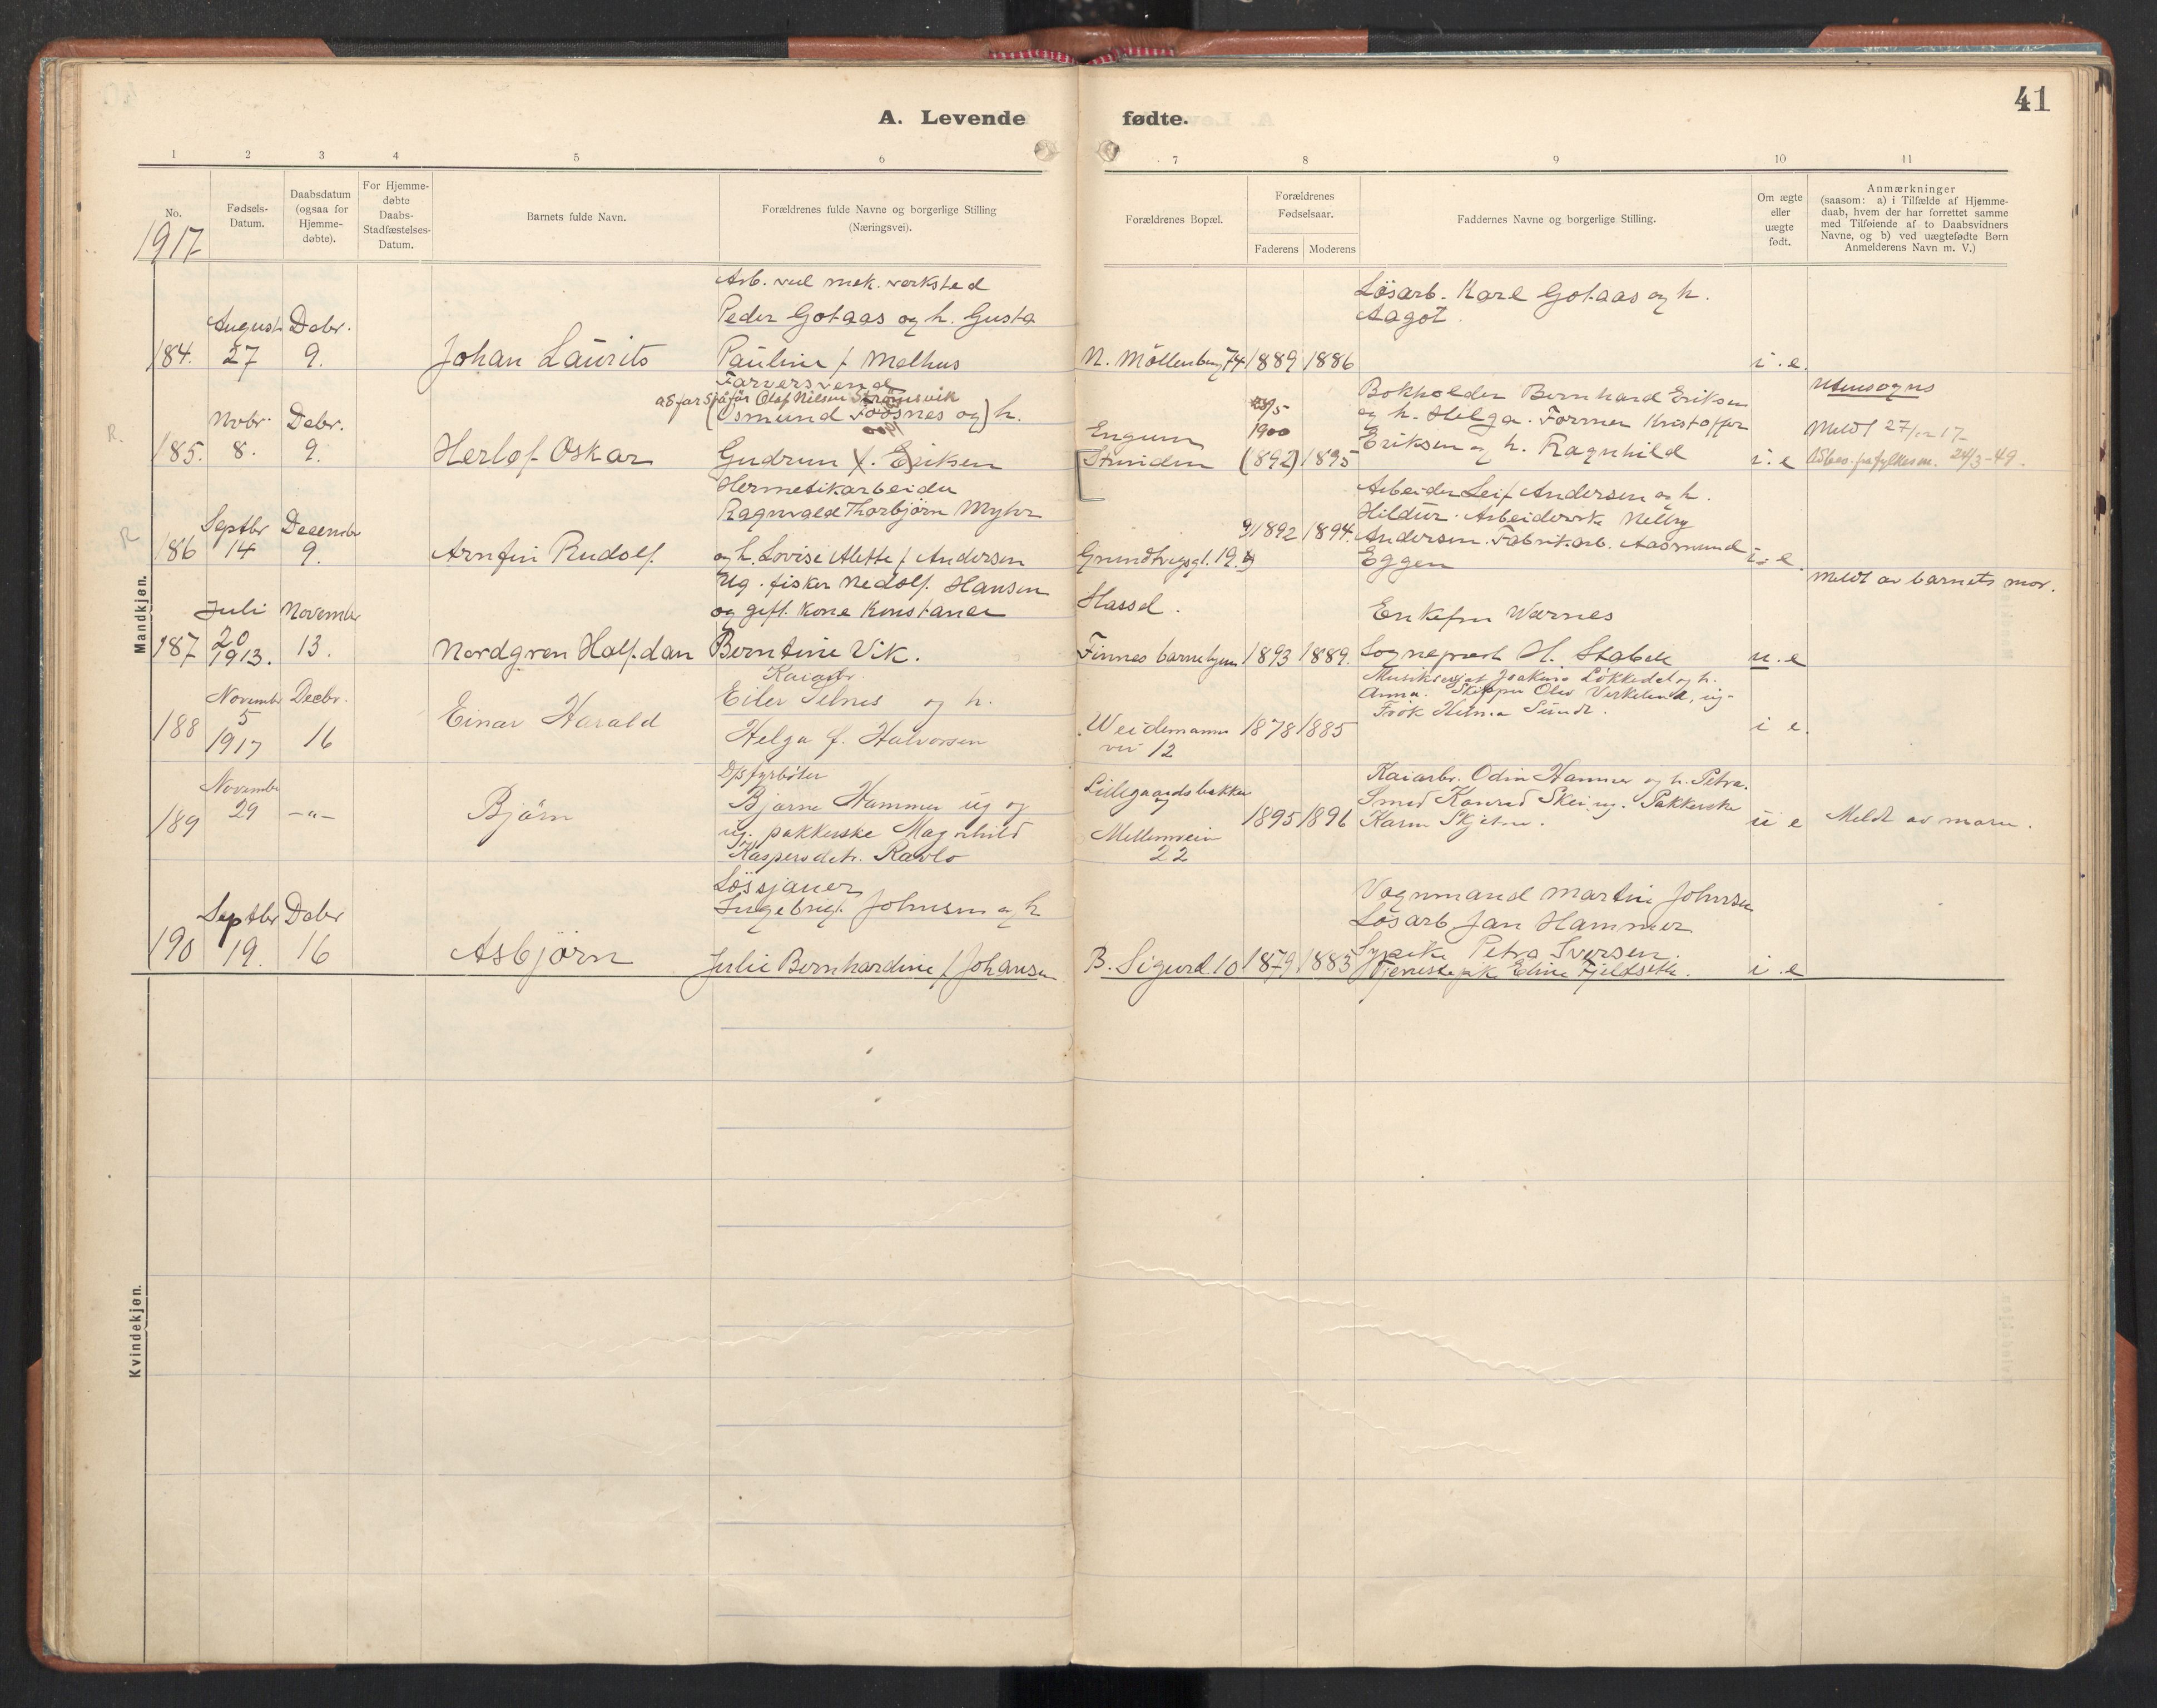 41
A. Levende fødte.
1 2 3 4 5 6 7 8 9 10 11
No.
Fødsels-
Datum.
Daabsdatum
(ogsaa for
Hjemme-
døbte).
For Hjemme-
døbte
Daabs-
Stadfæstelses-
Datum.
Barnets fulde Navn.
Forældrenes fulde Navne og borgerlige Stilling
(Næringsvei).
Forældrenes Bopæl.
Forældrenes
Fødselsaar.
Faderens Moderens
Faddernes Navne og borgerlige Stilling.
Om ægte
eller
uægte
født.
Anmærkninger
(saasom: a) i Tilfælde af Hjemme-
daab, hvem der har forrettet samme
med Tilføiende af to Daabsvidners
Navne, og b) ved uægtefødte Børn
Anmelderens Navn m. V.)
1917
Mandkjøn.
184.
August
27
Debr.
9.
Johan Laurits
Arb. ved mek. verksted
Peder Gotaas og h. Gusta
Pauline f Melhus
N. Möllenberg 74
1889 1886
Lösarb. Karl Gotaas og h.
Aagot.
i. e.
R.
185.
Nvbr.
8.
Debr.
9.
Herlof Oskar
Farversvend
adfar Sjåfør Olaf Nielsen Strømsvik
(Osmund Foosnes og) h.
Gudrun f. Eriksen
Engum
Strinden
1900
(1892) 1895
Bokholder Bernhard Eriksen
og h. Helga. Former Kristoffer
Eriksen og h. Ragnhild
i. e
Utensogns
Meldt 27/12 17
24/3-49.
R
186
Septbr
14
Decembr
9.
Arnfin Rudolf.
Hermetikarbeider
Ragnvald Thorbjörn Myhr
og h. Lovise Alette f Andersen
Grundtvigsgt. 19.
1892 1894.
Arbeider Leif Andersen og h.
Hildur. Arbeiderske Nelly
Andersen. Fabrikarb. Aasmund
Eggen
i. e.
187
Juli
20
1913.
November
13.
Nordgren Halfdan
Ug. fisker Nedolf Hansen
og gift kone Konstance
Berntine Vik.
Hassel.
Finnes barnehjem
1893 1889.
Enkefru Wærnes
Sogneprest H. Stabell
u. e
Meldt av barnets mor.
188
Novembr
5
1917
Decbr.
16
Einar Harald
Kaiarbr.
Eiler Selnes og h.
Helga f. Halvorsen
Weidemanns
vei 12
1878 1885
Joakim Løkkedal og h.
Anna. Skipper Olav Virkelund, ug.
Frök Helma Sundt.
i e.
189
Novembr
29
-"-
Björn
D/s fyrböter
Bjarne Hammer ug og
ug. pakkerske Magnhild
Kaspersdtr. Ravlo
Lillegaardsbakken
og
Mellemveien
22
1895 1896
Kaiarbr. Odin Hammer og h. Petra.
Smed Konrad Skei ug. Pakkerske
Karen Skjelne.
u e
Meldt av moren.
190
Septbr
19.
Debr
16
Asbjörn
Lössjauer
Ingebrigt Johnsen og h
Julie Bernhardine f Johansen
B. Sigurd 10
1879 1883
Vognmand Martin Johnsen
Lösarb Jan Hammer
Sypike Petra Iversen.
Tjenestepike Eline Fjeldseth.
i. e
Kvindekjøn.